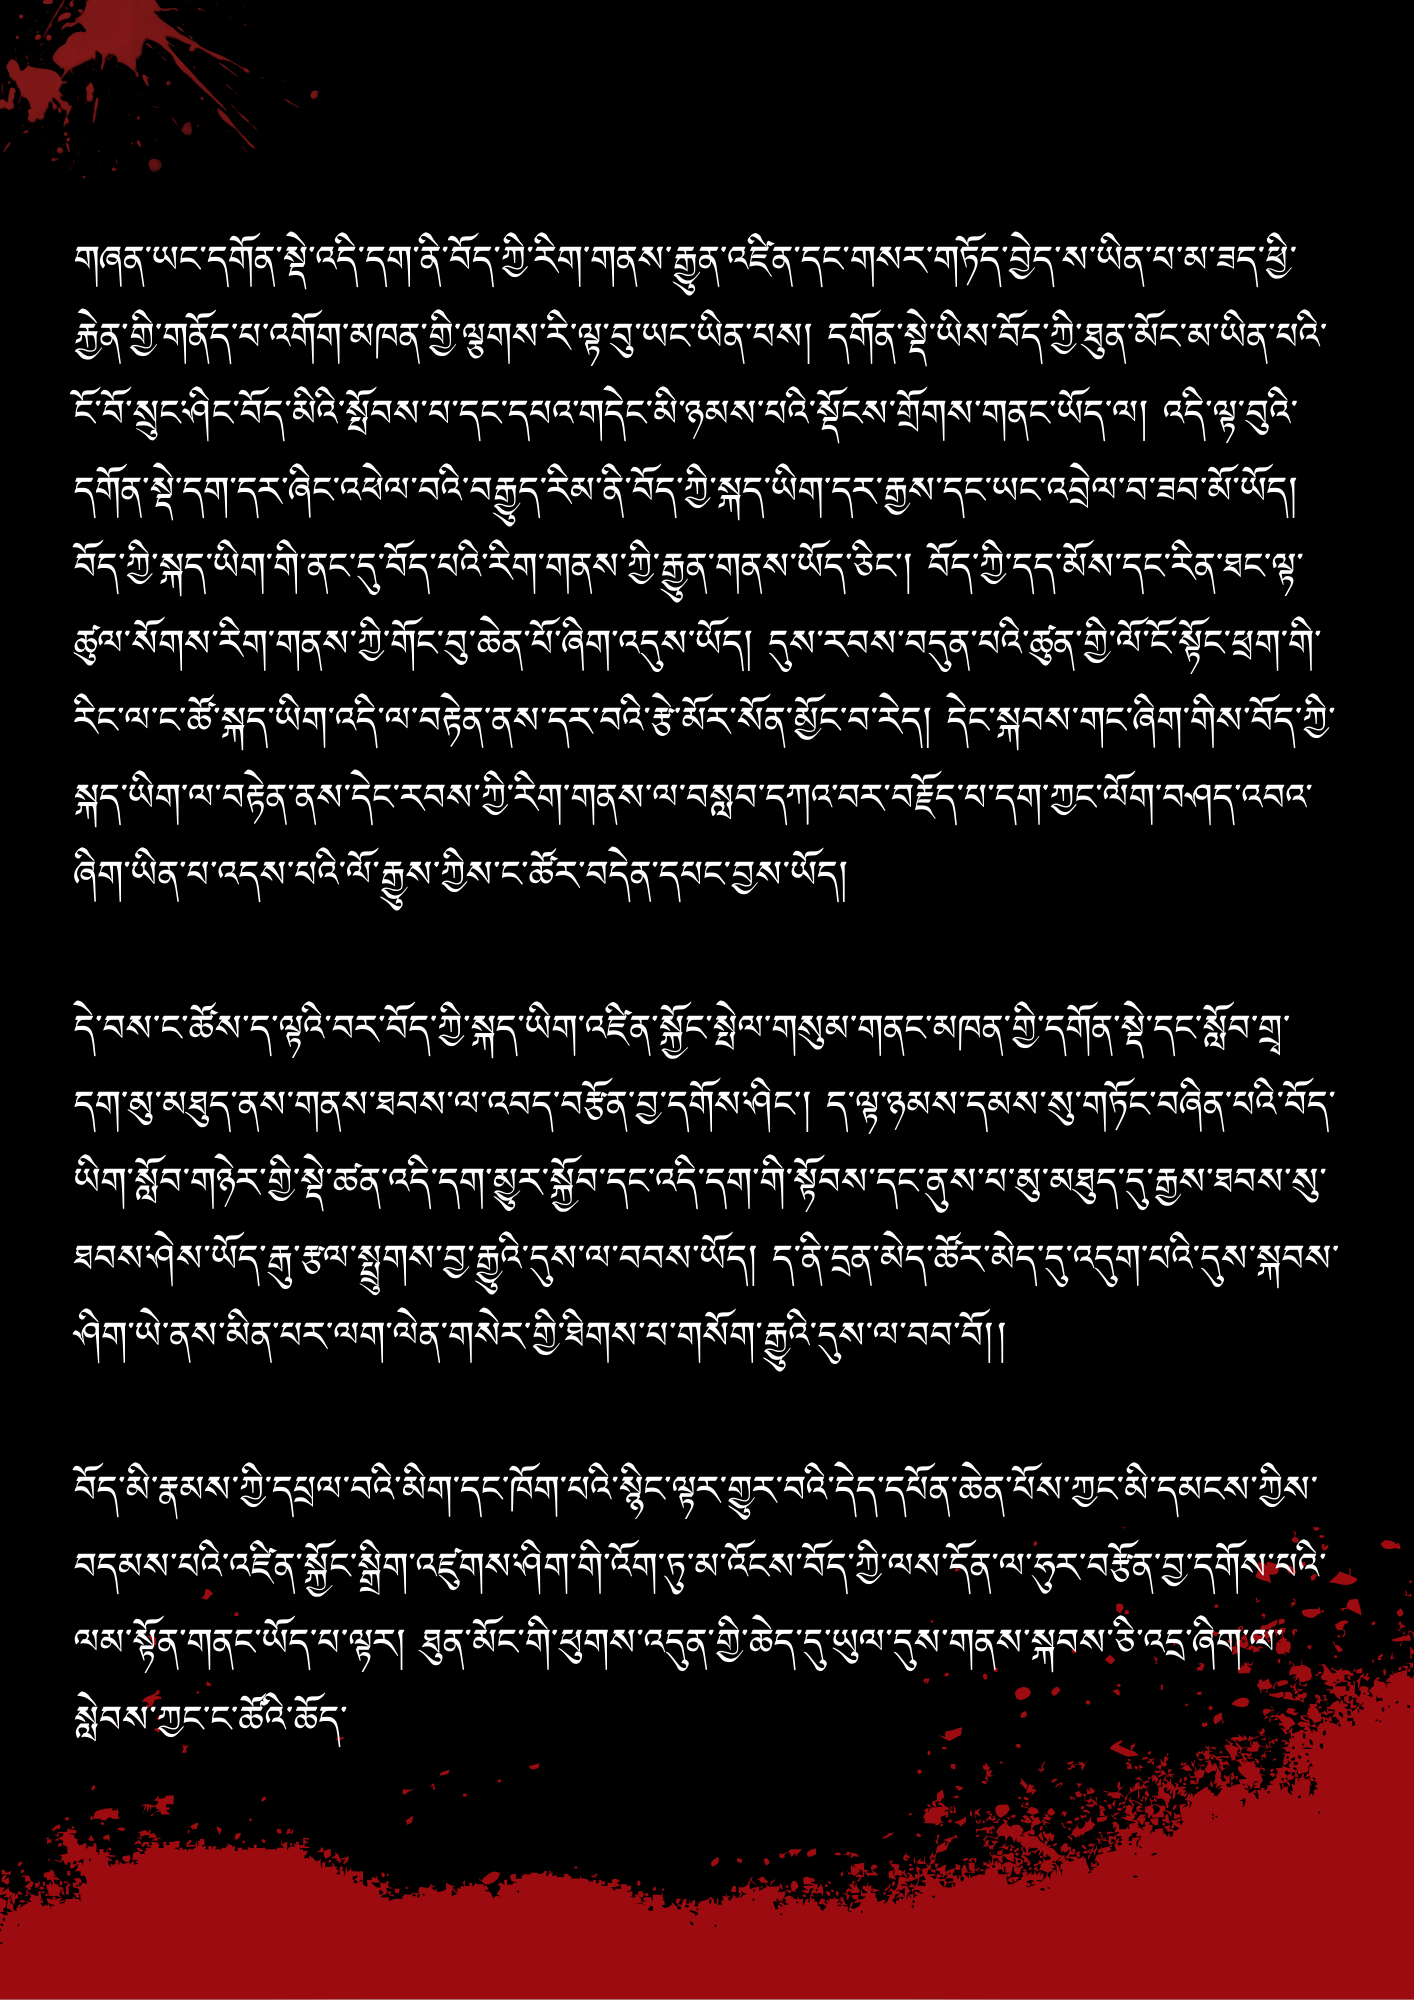 གཞན་ཡང་དགོན་སྡེ་འདི་དག་ནི་བོད་ཀྱི་རིག་གནས་རྒྱུན་འཛིན་དང་གསར་གཏོད་བྱེད་ས་ཡིན་པ་མ་ཟད་ཕྱི་
རྐྱེན་གྱི་གནོད་པ་འགོག་མཁན་གྱི་ལྕགས་རི་ལྟ་བུ་ཡང་ཡིན་པས། དགོན་སྡེ་ཡིས་བོད་ཀྱི་ཐུན་མོང་མ་ཡིན་པའི་
ངོ་བོ་སྲུང་ཤིང་བོད་མིའི་སྤོབས་པ་དང་དཔའ་གདེང་མི་ཉམས་པའི་སྡོངས་གྲོགས་གནང་ཡོད་ལ། འདི་ལྟ་བུའི་
དགོན་སྡེ་དག་དར་ཞིང་འཕེལ་བའི་བརྒྱུད་རིམ་ནི་བོད་ཀྱི་སྐད་ཡིག་དར་རྒྱས་དང་ཡང་འབྲེལ་བ་ཟབ་མོ་ཡོད།
བོད་ཀྱི་སྐད་ཡིག་གི་ནང་དུ་བོད་པའི་རིག་གནས་ཀྱི་རྒྱུན་གནས་ཡོད་ཅིང་། བོད་ཀྱི་དད་མོས་དང་རིན་ཐང་ལྟ་
ཚུལ་སོགས་རིག་གནས་ཀྱི་གོང་བུ་ཆེན་པོ་ཞིག་འདུས་ཡོད། དུས་རབས་བདུན་པའི་ཚུན་གྱི་ལོ་ངོ་སྟོང་ཕྲག་གི་
རིང་ལ་ང་ཚོ་སྐད་ཡིག་འདི་ལ་བརྟེན་ནས་དར་བའི་རྩེ་མོར་སོན་མྱོང་བ་རེད། དེང་སྐབས་གང་ཞིག་གིས་བོད་ཀྱི་
སྐད་ཡིག་ལ་བརྟེན་ནས་དེང་རབས་ཀྱི་རིག་གནས་ལ་བསླབ་དཀའ་བར་བརྗོད་པ་དག་ཀྱང་ལོག་བཤད་འབའ་
ཞིག་ཡིན་པ་འདས་པའི་ལོ་རྒྱུས་ཀྱིས་ང་ཚོར་བདེན་དཔང་བྱས་ཡོད།
དེ་བས་ང་ཚོས་ད་ལྟའི་བར་བོད་ཀྱི་སྐད་ཡིག་འཛིན་སྐྱོང་སྤེལ་གསུམ་གནང་མཁན་གྱི་དགོན་སྡེ་དང་སློབ་གྲྭ་
དག་མུ་མཐུད་ནས་གནས་ཐབས་ལ་འབད་བརྩོན་བྱ་དགོས་ཤིང་། ད་ལྟ་ཉམས་དམས་སུ་གཏོང་བཞིན་པའི་བོད་
ཡིག་སློབ་གཉེར་གྱི་སྡེ་ཚན་འདི་དག་མྱུར་སྐྱོབ་དང་འདི་དག་གི་སྟོབས་དང་ནུས་པ་མུ་མཐུད་དུ་རྒྱས་ཐབས་སུ་
ཐབས་ཤེས་ཡོད་རྒུ་རྩལ་སྤྲུགས་བྱ་རྒྱུའི་དུས་ལ་བབས་ཡོད། ད་ནི་དྲན་མེད་ཚོར་མེད་དུ་འདུག་པའི་དུས་སྐབས་
ཤིག་ཡེ་ནས་མིན་པར་ལག་ལེན་གསེར་གྱི་ཐིགས་པ་གསོག་རྒྱུའི་དུས་ལ་བབ་བོ།།
བོད་མི་རྣམས་ཀྱི་དཔྲལ་བའི་མིག་དང་ཁོག་པའི་སྙིང་ལྟར་གྱུར་བའི་དེད་དཔོན་ཆེན་པོས་ཀྱང་མི་དམངས་ཀྱིས་
བདམས་པའི་འཛིན་སྐྱོང་སྒྲིག་འཛུགས་ཤིག་གི་འོག་ཏུ་མ་འོངས་བོད་ཀྱི་ལས་དོན་ལ་ཧུར་བརྩོན་བྱ་དགོས་པའི་
ལམ་སྟོན་གནང་ཡོད་པ་ལྟར། ཐུན་མོང་གི་ཕུགས་འདུན་གྱི་ཆེད་དུ་ཡུལ་དུས་གནས་སྐབས་ཅི་འདྲ་ཞིག་ལ་
སླེབས་ཀྱང་ང་ཚོའི་ཆོད་